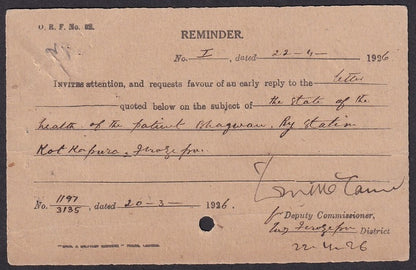 O. R. F. No. 22.
REMINDER.
No. I, dated 22-4- 1926
INVITES attention, and requests favour of an early reply to the letter
quoted below on the subject of the state of the
health of the patient Bhagwan, Ry Station
Kot Kapura, Ferozepur.
No. 1197/3135, dated 20-3- 1926.
Deputy Commissioner,
Ferozepur District
22-4-26